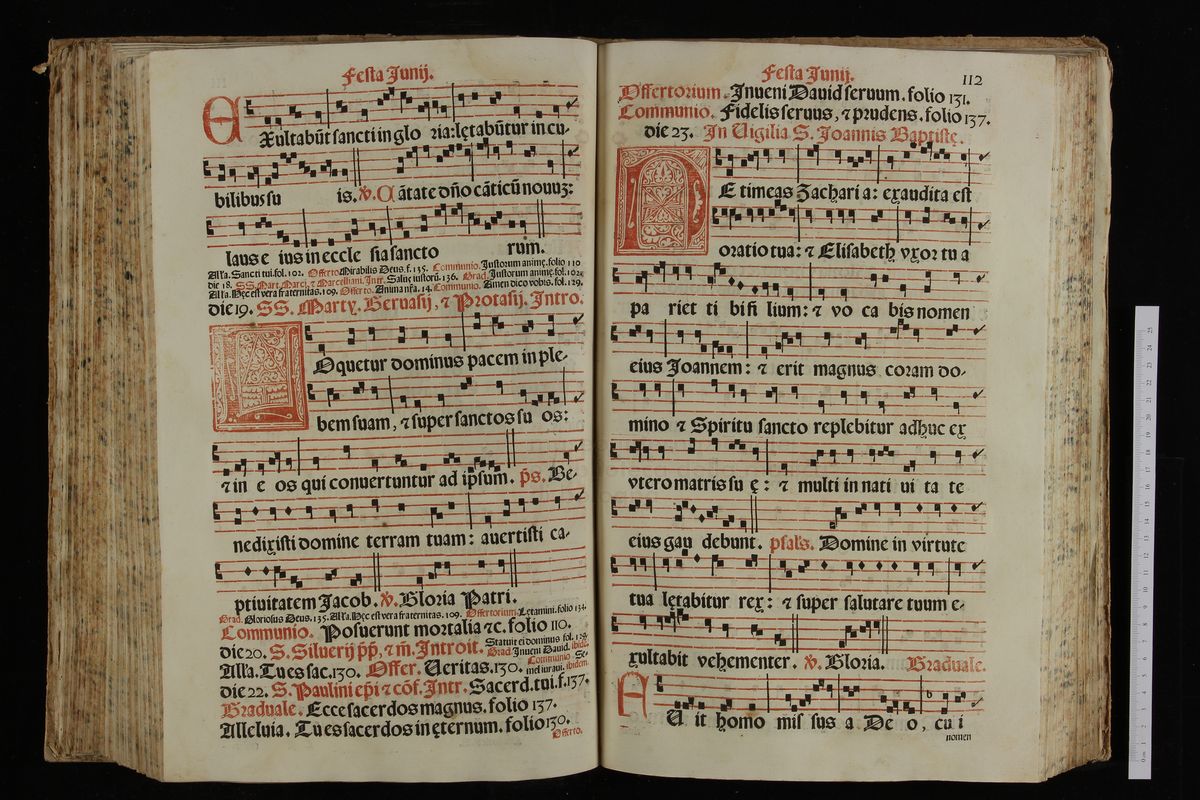 Festa Junij.
EXultabūt sancti in glo ria: lętabūtur in cu-
bilibus su is. ℣. Cātate dño cāticū nouuz:
laus e ius in eccle sia sancto rum.
Alľa. Sancti tui. fol. 102. Offerto. Mirabilis Deus. f. 135. Communio. Justorum animę. folio 110
die 18. SS. Mart. Marci, ⁊ Marcelliani. Intr. Salus iustorū. 136. Grad. Justorum animę. fol. 102.
Alľa. Hęc est vera fraternitas. 109. Offerto. Anima nřa. 14. Communio. Amen dico vobis. fol. 129.
die 19. SS. Marty. Geruasij, ⁊ Protasij. Intro.
LOquetur dominus pacem in ple-
bem suam, ⁊ super sanctos su os:
⁊ in e os qui conuertuntur ad ipsum. p̄s. Be-
nedixisti domine terram tuam: auertisti ca-
ptiuitatem Jacob. ℣. Gloria Patri.
Grad. Gloriosus Deus. 135. Alľa. Hęc est vera fraternitas. 109. Offertorium. Lętamini. folio 134.
Communio. Posuerunt mortalia ⁊c. folio 110.
die 20. S. Siluerij p̄p̄, ⁊ m̄. Introit. Statuit ei dominus fol. 128. Grad. Inueni Dauid. ibidē.
Alľa. Tu es sac. 130. Offer. Ueritas. 130. Communio Semel iuraui. ibidem.
die 22. S. Paulini ep̄i ⁊ cōf. Intr. Sacerd. tui. f. 137.
Graduale. Ecce sacerdos magnus. folio 137.
Alleluia. Tu es sacerdos in ęternum. folio 130.
Offerto.
Festa Junij. 112
Offertorium. Inueni Dauid seruum. folio 131.
Communio. Fidelis seruus, ⁊ prudens. folio 137.
die 23. In Uigilia S. Joannis Baptistę.
NE timeas Zachari a: exaudita est
oratio tua: ⁊ Elisabeth vxor tu a
pa riet ti bi fi lium: ⁊ vo ca bis nomen
eius Joannem: ⁊ erit magnus coram do-
mino ⁊ Spiritu sancto replebitur adhuc ex
vtero matris su ę: ⁊ multi in nati ui ta te
eius gau debunt. psal's. Domine in virtute
tua lętabitur rex: ⁊ super salutare tuum e-
xultabit vehementer. ℣. Gloria. Graduale.
FU it homo mis sus a De o, cu i
nomen